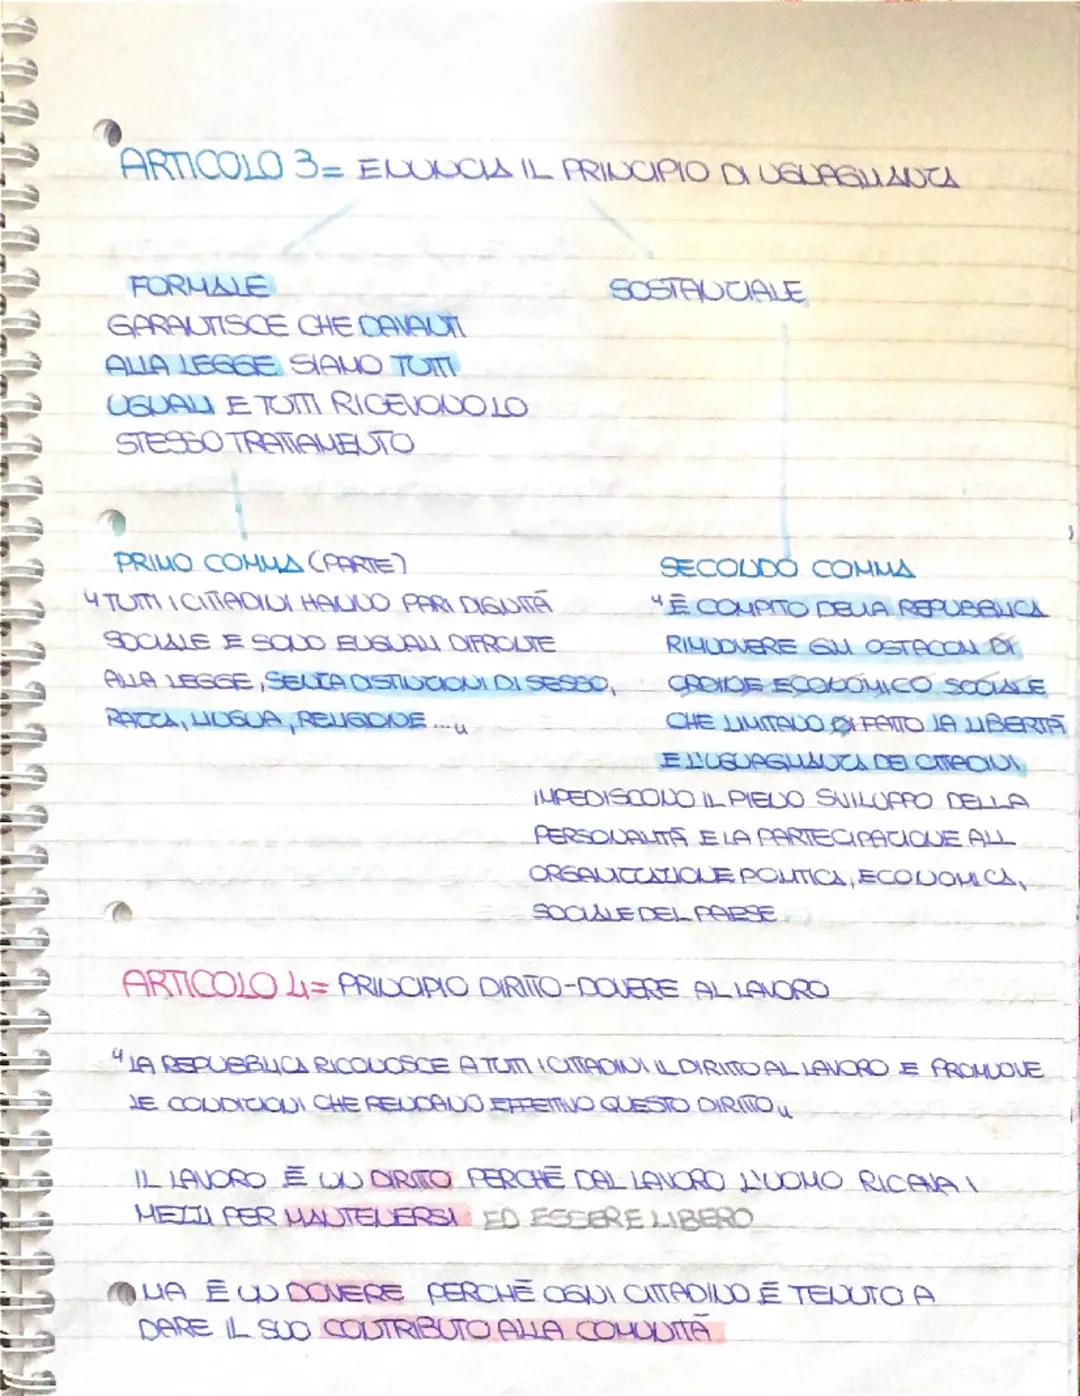 ARTICOLO 3= ENUNCIA IL PRINCIPIO DI UGUAGLIANZA
FORMALE
GARANTISCE CHE DAVANTI
ALLA LEGGE SIAMO TUTTI
UGUALI E TUTTI RICEVONO LO
STESSO TRATTAMENTO
SOSTANZIALE
PRIMO COMMA (PARTE)
"TUTTI I CITTADINI HANNO PARI DIGNITÀ
SOCIALE E SONO EUGUALI DIFRONTE
ALLA LEGGE, SENZA DISTINZIONI DI SESSO,
RAZZA, LINGUA, RELIGIONE..."
SECONDO COMMA
"È COMPITO DELLA REPUBBLICA
RIMUOVERE GLI OSTACOLI DI
ORDINE ECONOMICO SOCIALE
CHE LIMITANO DI FATTO LA LIBERTÀ
E L'UGUAGLIANZA DEI CITTADINI,
IMPEDISCONO IL PIENO SVILUPPO DELLA
PERSONALITÀ E LA PARTECIPAZIONE ALL
ORGANIZZAZIONE POLITICA, ECONOMICA,
SOCIALE DEL PAESE.
ARTICOLO 4= PRINCIPIO DIRITTO-DOVERE AL LAVORO
"LA REPUBBLICA RICONOSCE A TUTTI I CITTADINI IL DIRITTO AL LAVORO E PROMUOVE
LE CONDIZIONI CHE RENDANO EFFETTIVO QUESTO DIRITTO"
IL LAVORO È UN DIRITTO PERCHÈ DAL LAVORO L'UOMO RICAVA I
MEZZI PER MANTENERSI ED ESSERE LIBERO
MA È UN DOVERE PERCHÈ OGNI CITTADINO È TENUTO A
DARE IL SUO CONTRIBUTO ALLA COMUNITÀ